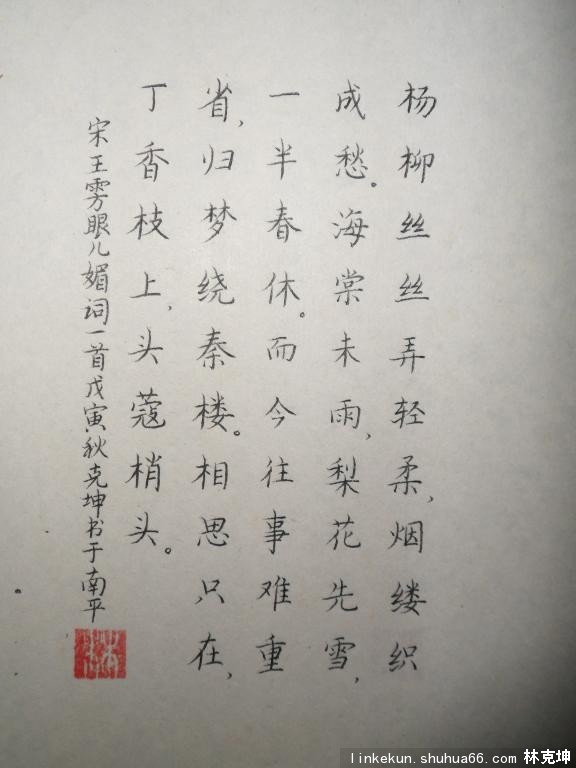 杨柳丝丝弄轻柔,烟缕织
成愁。海棠未雨,梨花先雪,
一半春休。而今往事难重
省,归梦绕秦楼。相思只在,
丁香枝上,头蔻梢头。
宋王雱眼儿媚词一首戊寅秋克坤书于南平
linkekun.shuhua66.com 林克坤